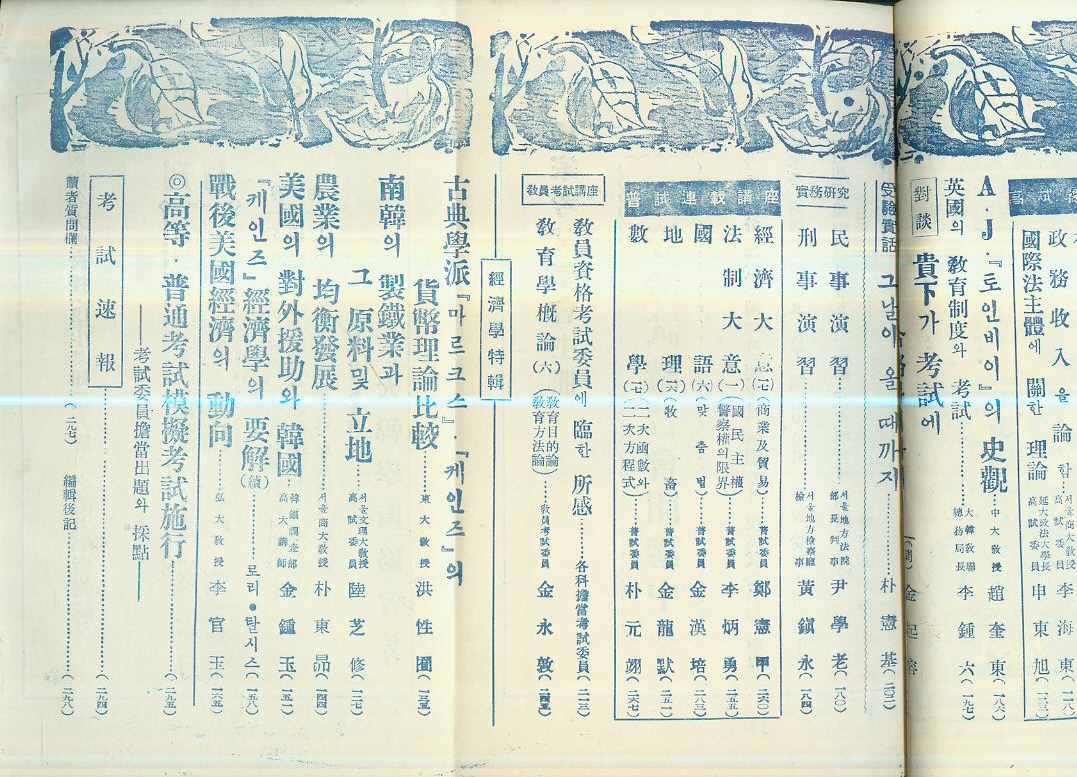 政務收入을 論함
서울商大教授
高試委員 李海東
國際法主體에 關한 理論
延大政法大學長
高試委員 申東旭
A·J·『토인비이』의 史觀
中大教授 趙奎東(一八六)
英國의 敎育制度와 考試
大韓敎聯
總務局長 李鍾六(一九七)
對談
貴下가 考試에
金起
受驗實話
그날이 올 때까지
朴憲基(二〇二)
實務研究
民事演習
서울地方法院
部長判事 尹學老(一八〇)
刑事演習
서울地方檢察廳
檢事 黃鎭永(一八四)
普試連載講座
經濟大意(七)(商業及貿易)
普試委員 鄭憲甲(二六〇)
法制大意(一)(國民主權
警察權의限界)
普試委員 李炳勇(二五五)
國語(六)(맞춤법)
普試委員 金漢培(二六三)
地理(六)(牧畜)
普試委員 金龍默(二五一)
數學(七)(二次函數와
二次方程式)
普試委員 朴元翊(二六七)
敎員考試講座
敎員資格考試委員에 臨한 所感
各科擔當考試委員(二三三)
敎育學槪論(六)(敎育目的論
敎育方法論)
敎員考試委員 金永敦(二四五)
經濟學特輯
古典學派『마르크스』·『케인즈』의
貨幣理論比較
東大敎授 洪性囿(一三五)
南韓의 製鐵業과
그 原料및 立地
서울文理大敎授
高試委員 陸芝修(一三七)
農業의 均衡發展
서울商大敎授 朴東昴(一四四)
美國의 對外援助와 韓國
韓銀調査部
高大講師 金鍾玉(一五一)
『케인즈』經濟學의 要解(續)
로리·탈시스(一五八)
戰後美國經濟의 動向
弘大敎授 李官玉(一六五)
◎高等·普通考試模擬考試施行
(二九五)
考試委員擔當出題와 採點
考試速報
(二九四)
讀者質問欄(二九七)
編輯後記(二九八)